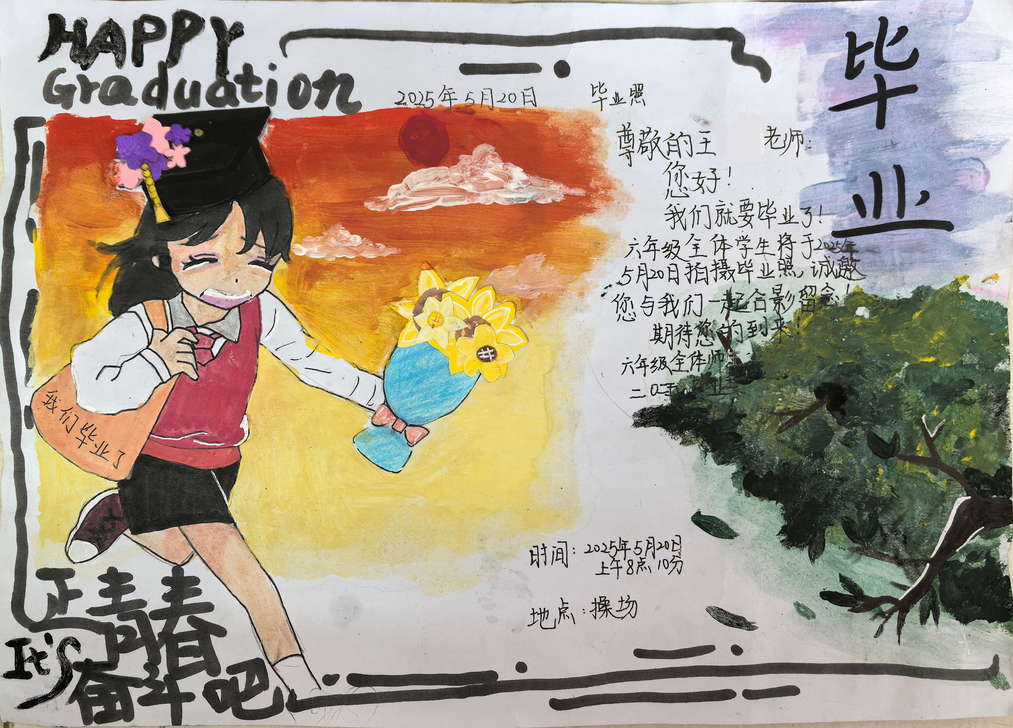 HAPPY
Graduation
2025年5月20日 毕业照
毕业
尊敬的王 老师:
您好!
我们就要毕业了!
六年级全体学生将于2025年
5月20日拍摄毕业照,诚邀
您与我们一起合影留念!
期待您的到来
六年级全体师
时间: 2025年5月20日
上午8点10分
地点: 操场
正青春
It's
奋斗吧